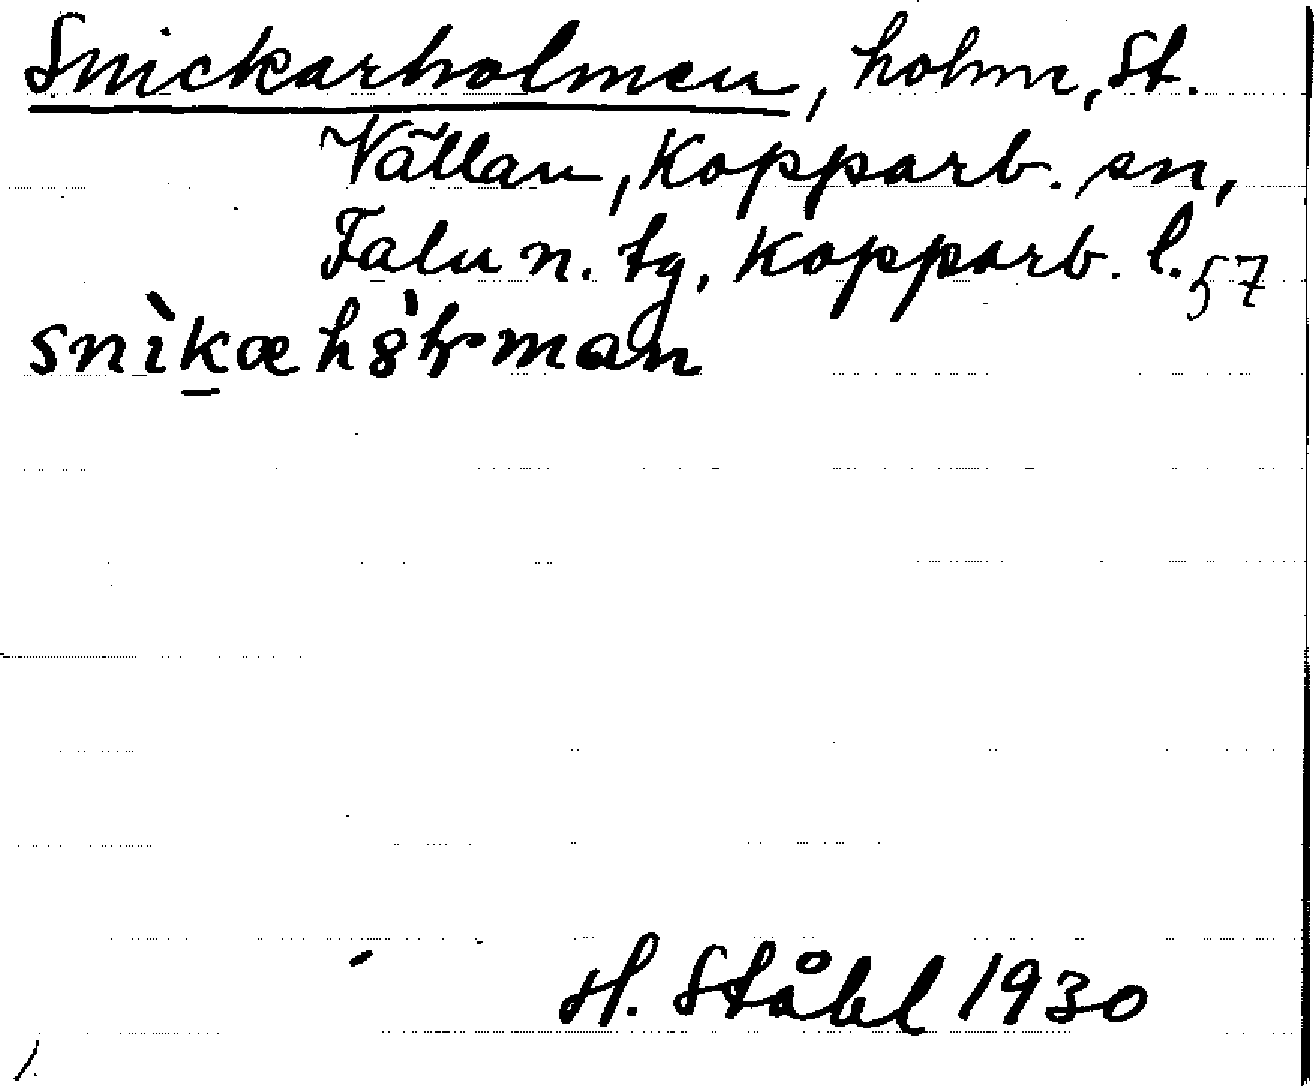 Snickarholmen, holm, St.
Vällan, Kopparb. sn,
Falu n. tg, Kopparb. l. 57
H. Ståhl 1930